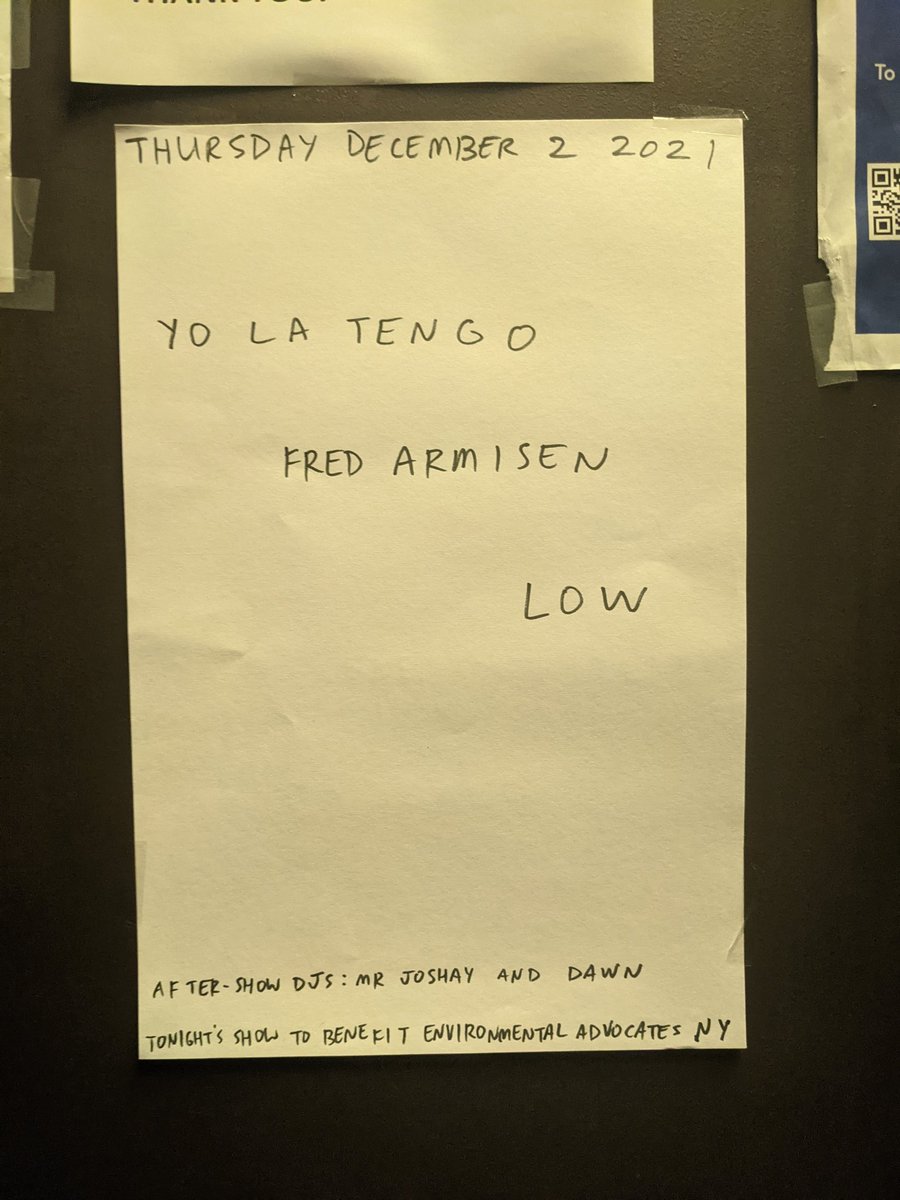 THANK YOU!
To
THURSDAY DECEMBER 2 2021
YO LA TENGO
FRED ARMISEN
LOW
AFTER-SHOW DJS: MR JOSHAY AND DAWN
TONIGHT'S SHOW TO BENEFIT ENVIRONMENTAL ADVOCATES NY